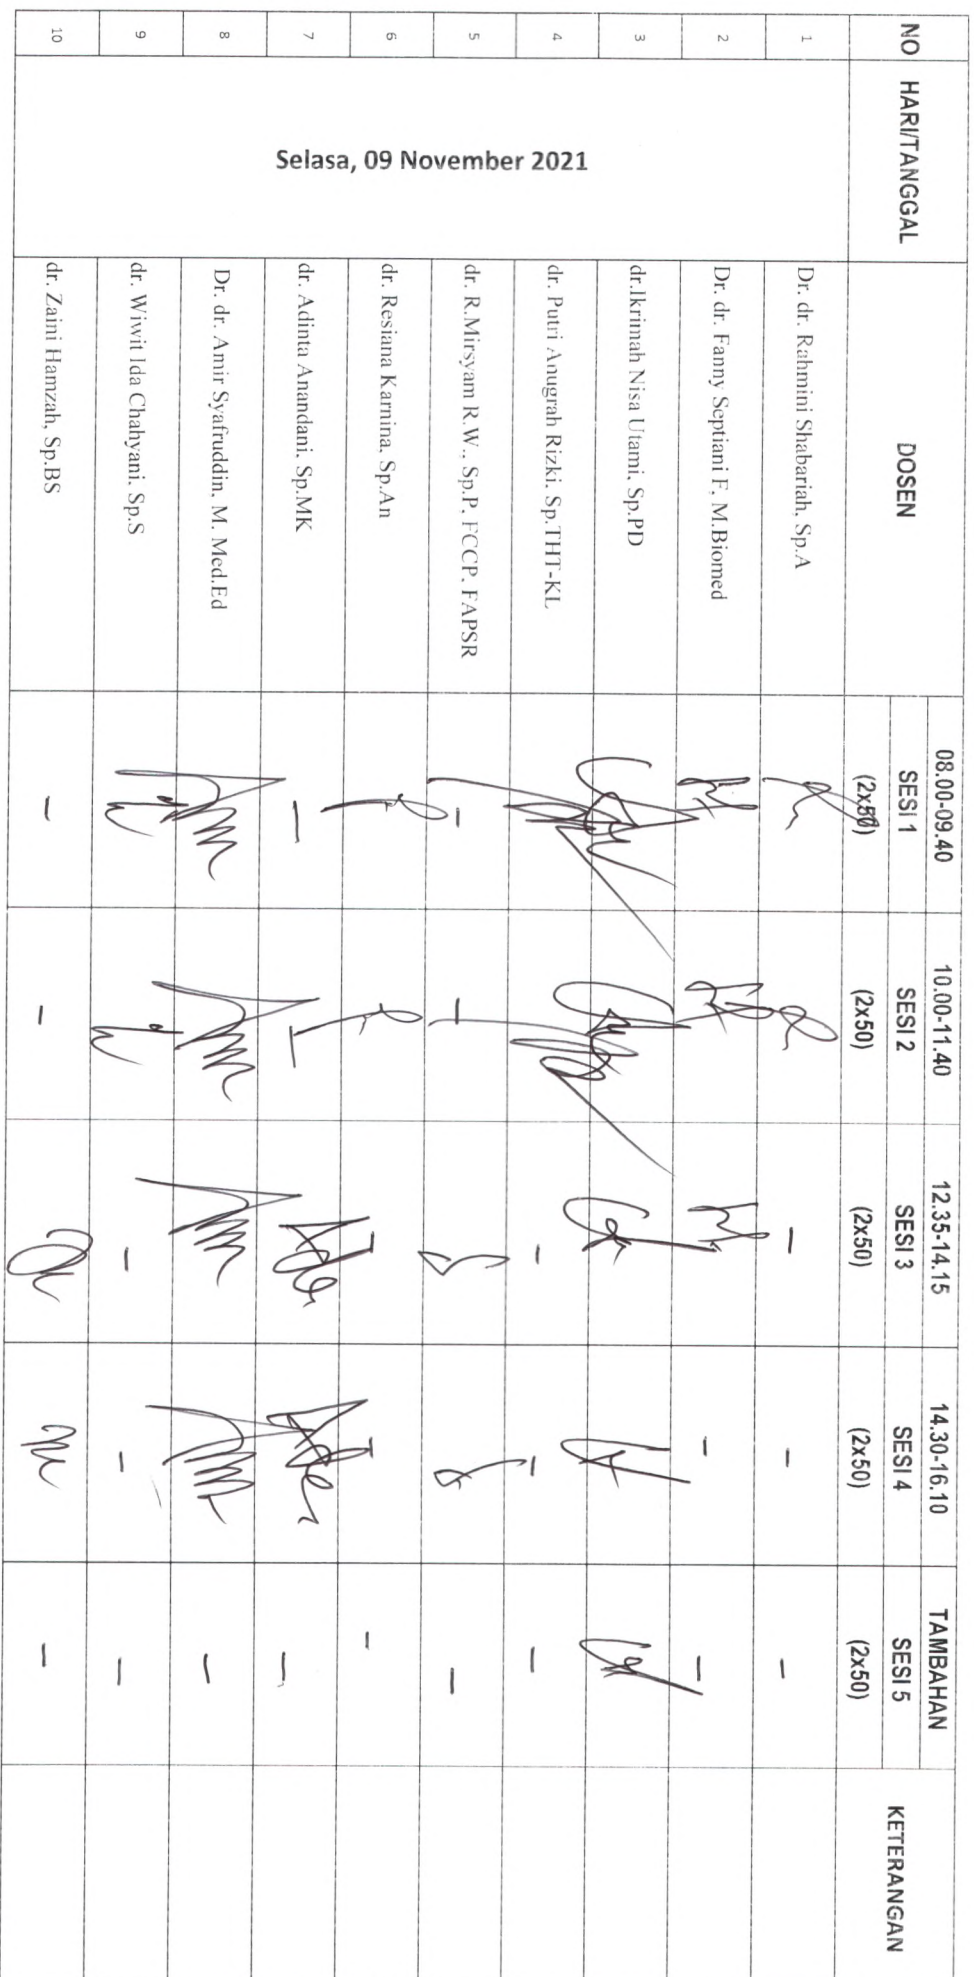 NO HARI/TANGGAL DOSEN 08.00-09.40 10.00-11.40 12.35-14.15 14.30-16.10 TAMBAHAN KETERANGAN
SESI 1 SESI 2 SESI 3 SESI 4 SESI 5
(2x50) (2x50) (2x50) (2x50) (2x50)
Selasa, 09 November 2021
1 Dr. dr. Rahmini Shabariah, Sp.A - - -
2 Dr. dr. Fanny Septiani F, M.Biomed - -
3 dr.Ikrimah Nisa Utami, Sp.PD
4 dr. Putri Anugrah Rizki, Sp.THT-KL - - -
5 dr. R.Mirsyam R.W., Sp.P, FCCP, FAPSR - - -
6 dr. Resiana Karnina, Sp.An - - -
7 dr. Adinta Anandani, Sp.MK - - -
8 Dr. dr. Amir Syafruddin, M. Med.Ed -
9 dr. Wiwit Ida Chahyani, Sp.S - - -
10 dr. Zaini Hamzah, Sp.BS - - -